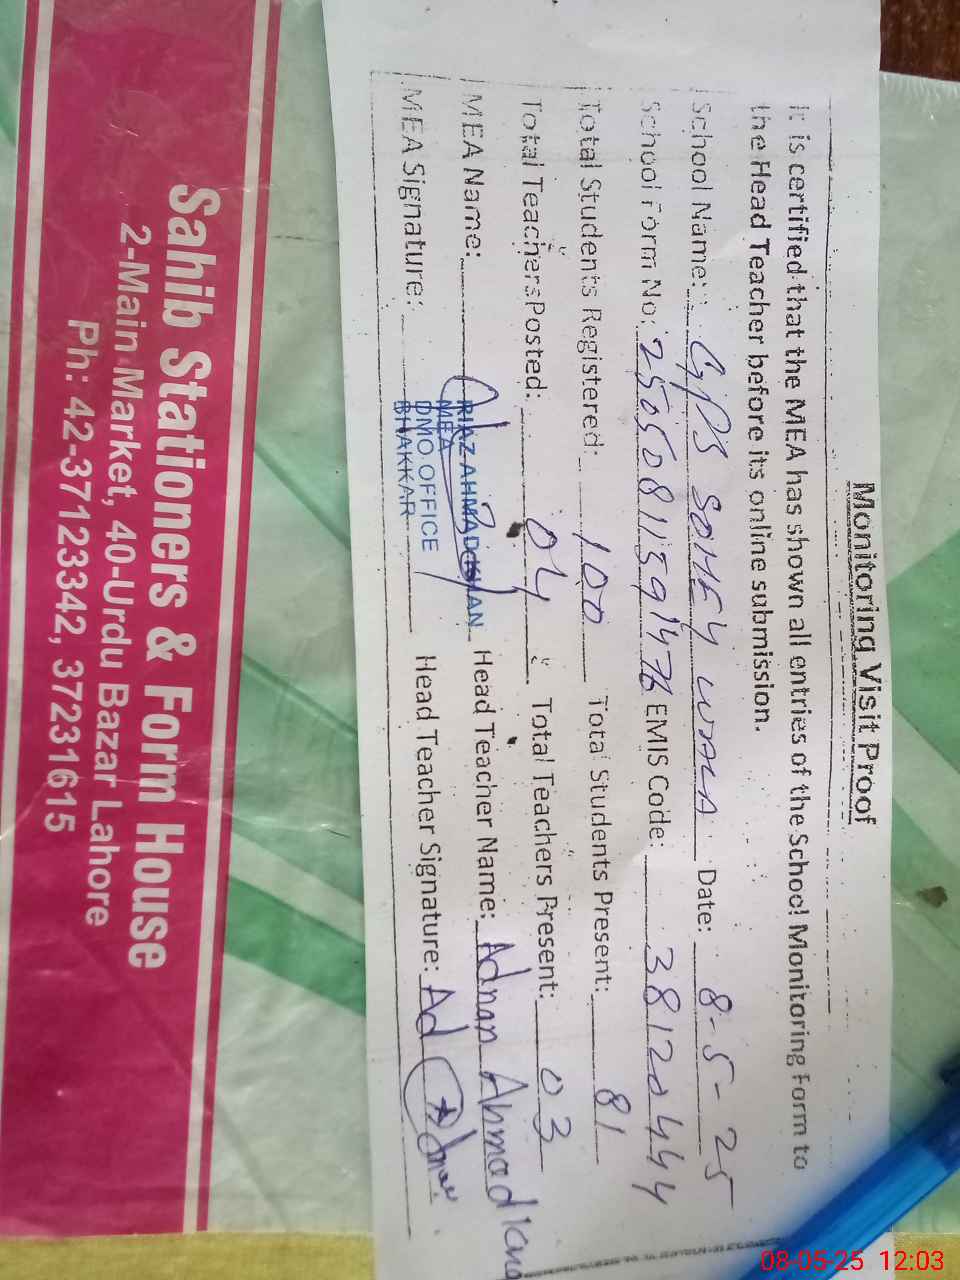 Monitoring Visit Proof
It is certified that the MEA has shown all entries of the School Monitoring Form to
the Head Teacher before its online submission.
School Name: GPS SOHEY WALA Date: 8-5-25
School Form No: 25050811391476 EMIS Code: 38120444
Total Students Registered: 100 Total Students Present: 81
Total Teachers Posted: 04 Total Teachers Present: 03
MEA Name: RIAZ AHMAD KHAN Head Teacher Name: Adnan Ahmad Khan
MEA
MEA Signature: DMO OFFICE Head Teacher Signature: Ad
BHAKKAR
Sahib Stationers & Form House
2-Main Market, 40-Urdu Bazar Lahore
Ph: 42-37123342, 37231615
08-05-25 12:03